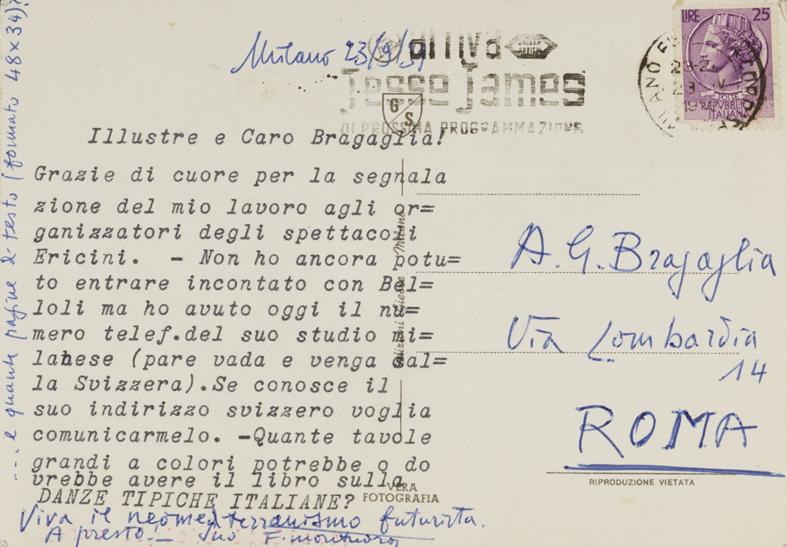 Milano 23/9/57
arriva
UNITED ARTISTS
Jesse James
DI PROSSIMA PROGRAMMAZIONE
LIRE 25
REPVBBLICA
ITALIANA
G
S
Illustre e Caro Bragaglia!
Grazie di cuore per la segnala
zione del mio lavoro agli or=
ganizzatori degli spettacoli
Ericini. - Non ho ancora potu=
to entrare incontato con Bel=
loli ma ho avuto oggi il nu=
mero telef.del suo studio mi=
lanese (pare vada e venga dal=
la Svizzera).Se conosce il
suo indirizzo svizzero voglia
comunicarmelo. -Quante tavole
grandi a colori potrebbe o do
vrebbe avere il libro sulla
DANZE TIPICHE ITALIANE?
Viva il neomediterranismo futurista.
A presto - Suo
... e quante pagine di testo (formato 48x34)?
Milano
VERA
FOTOGRAFIA
A. G. Bragaglia
Via Lombardia
14
ROMA
RIPRODUZIONE VIETATA